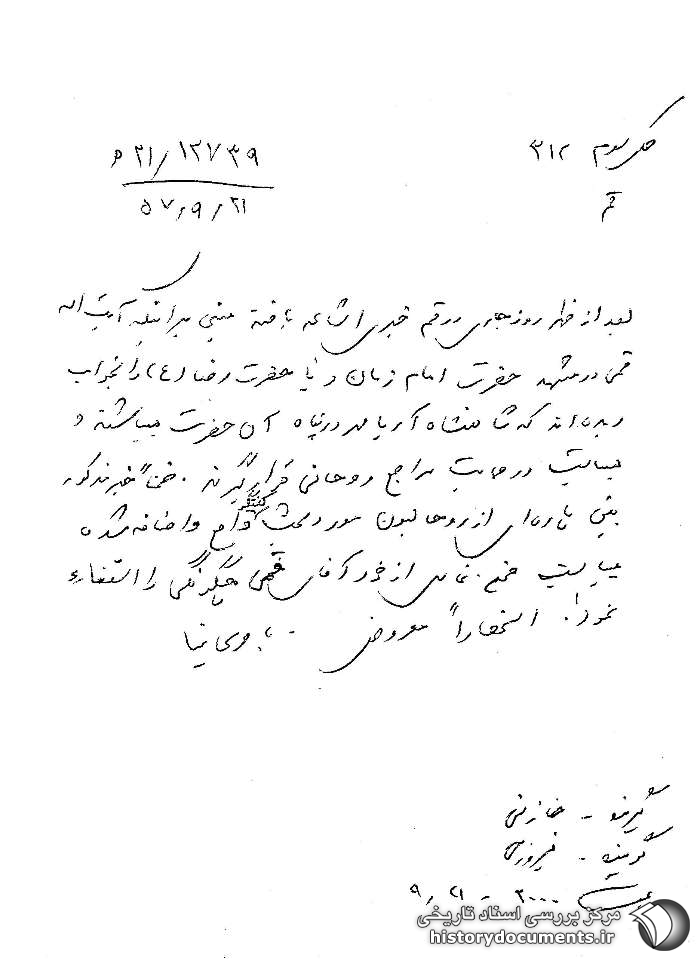 ۳۱۲
۲۱/۱۲۷۳۹ ه
قم
۵۷/۹/۲۱
بعد از ظهر روز جاری در قم خبری اشاعه یافته مبنی بر اینکه آیت اله
قمی در مشهد حضرت امام زمان و یا حضرت رضا (ع) را بخواب
دیده‌اند که شاهنشاه آریامهر در پناه آن حضرت میباشند و
میبایست در حمایت مراجع روحانی قرار گیرند . ضمناً خبر مذکور
بین پاره‌ای از روحانیون مورد بحث واقع و اضافه شده
میبایست ضمن تماس از خود آقای قمی چگونگی را استفسار
نمود . استحضاراً معروض .
گیرنده - خازنی
گوینده - فیروزی
ساعت ۲۰۰۰ - ۲۱/۹
مرکز بررسی اسناد تاریخی
historydocuments.ir